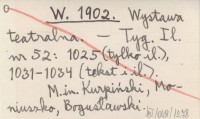 W. 1902. Wystawa
teatralna. — Tyg. Il.
nr 52: 1025 (tylko il.),
1031-1034 (tekst i il.).
M. in. Kurpiński, Mo-
niuszko, Bogusławski